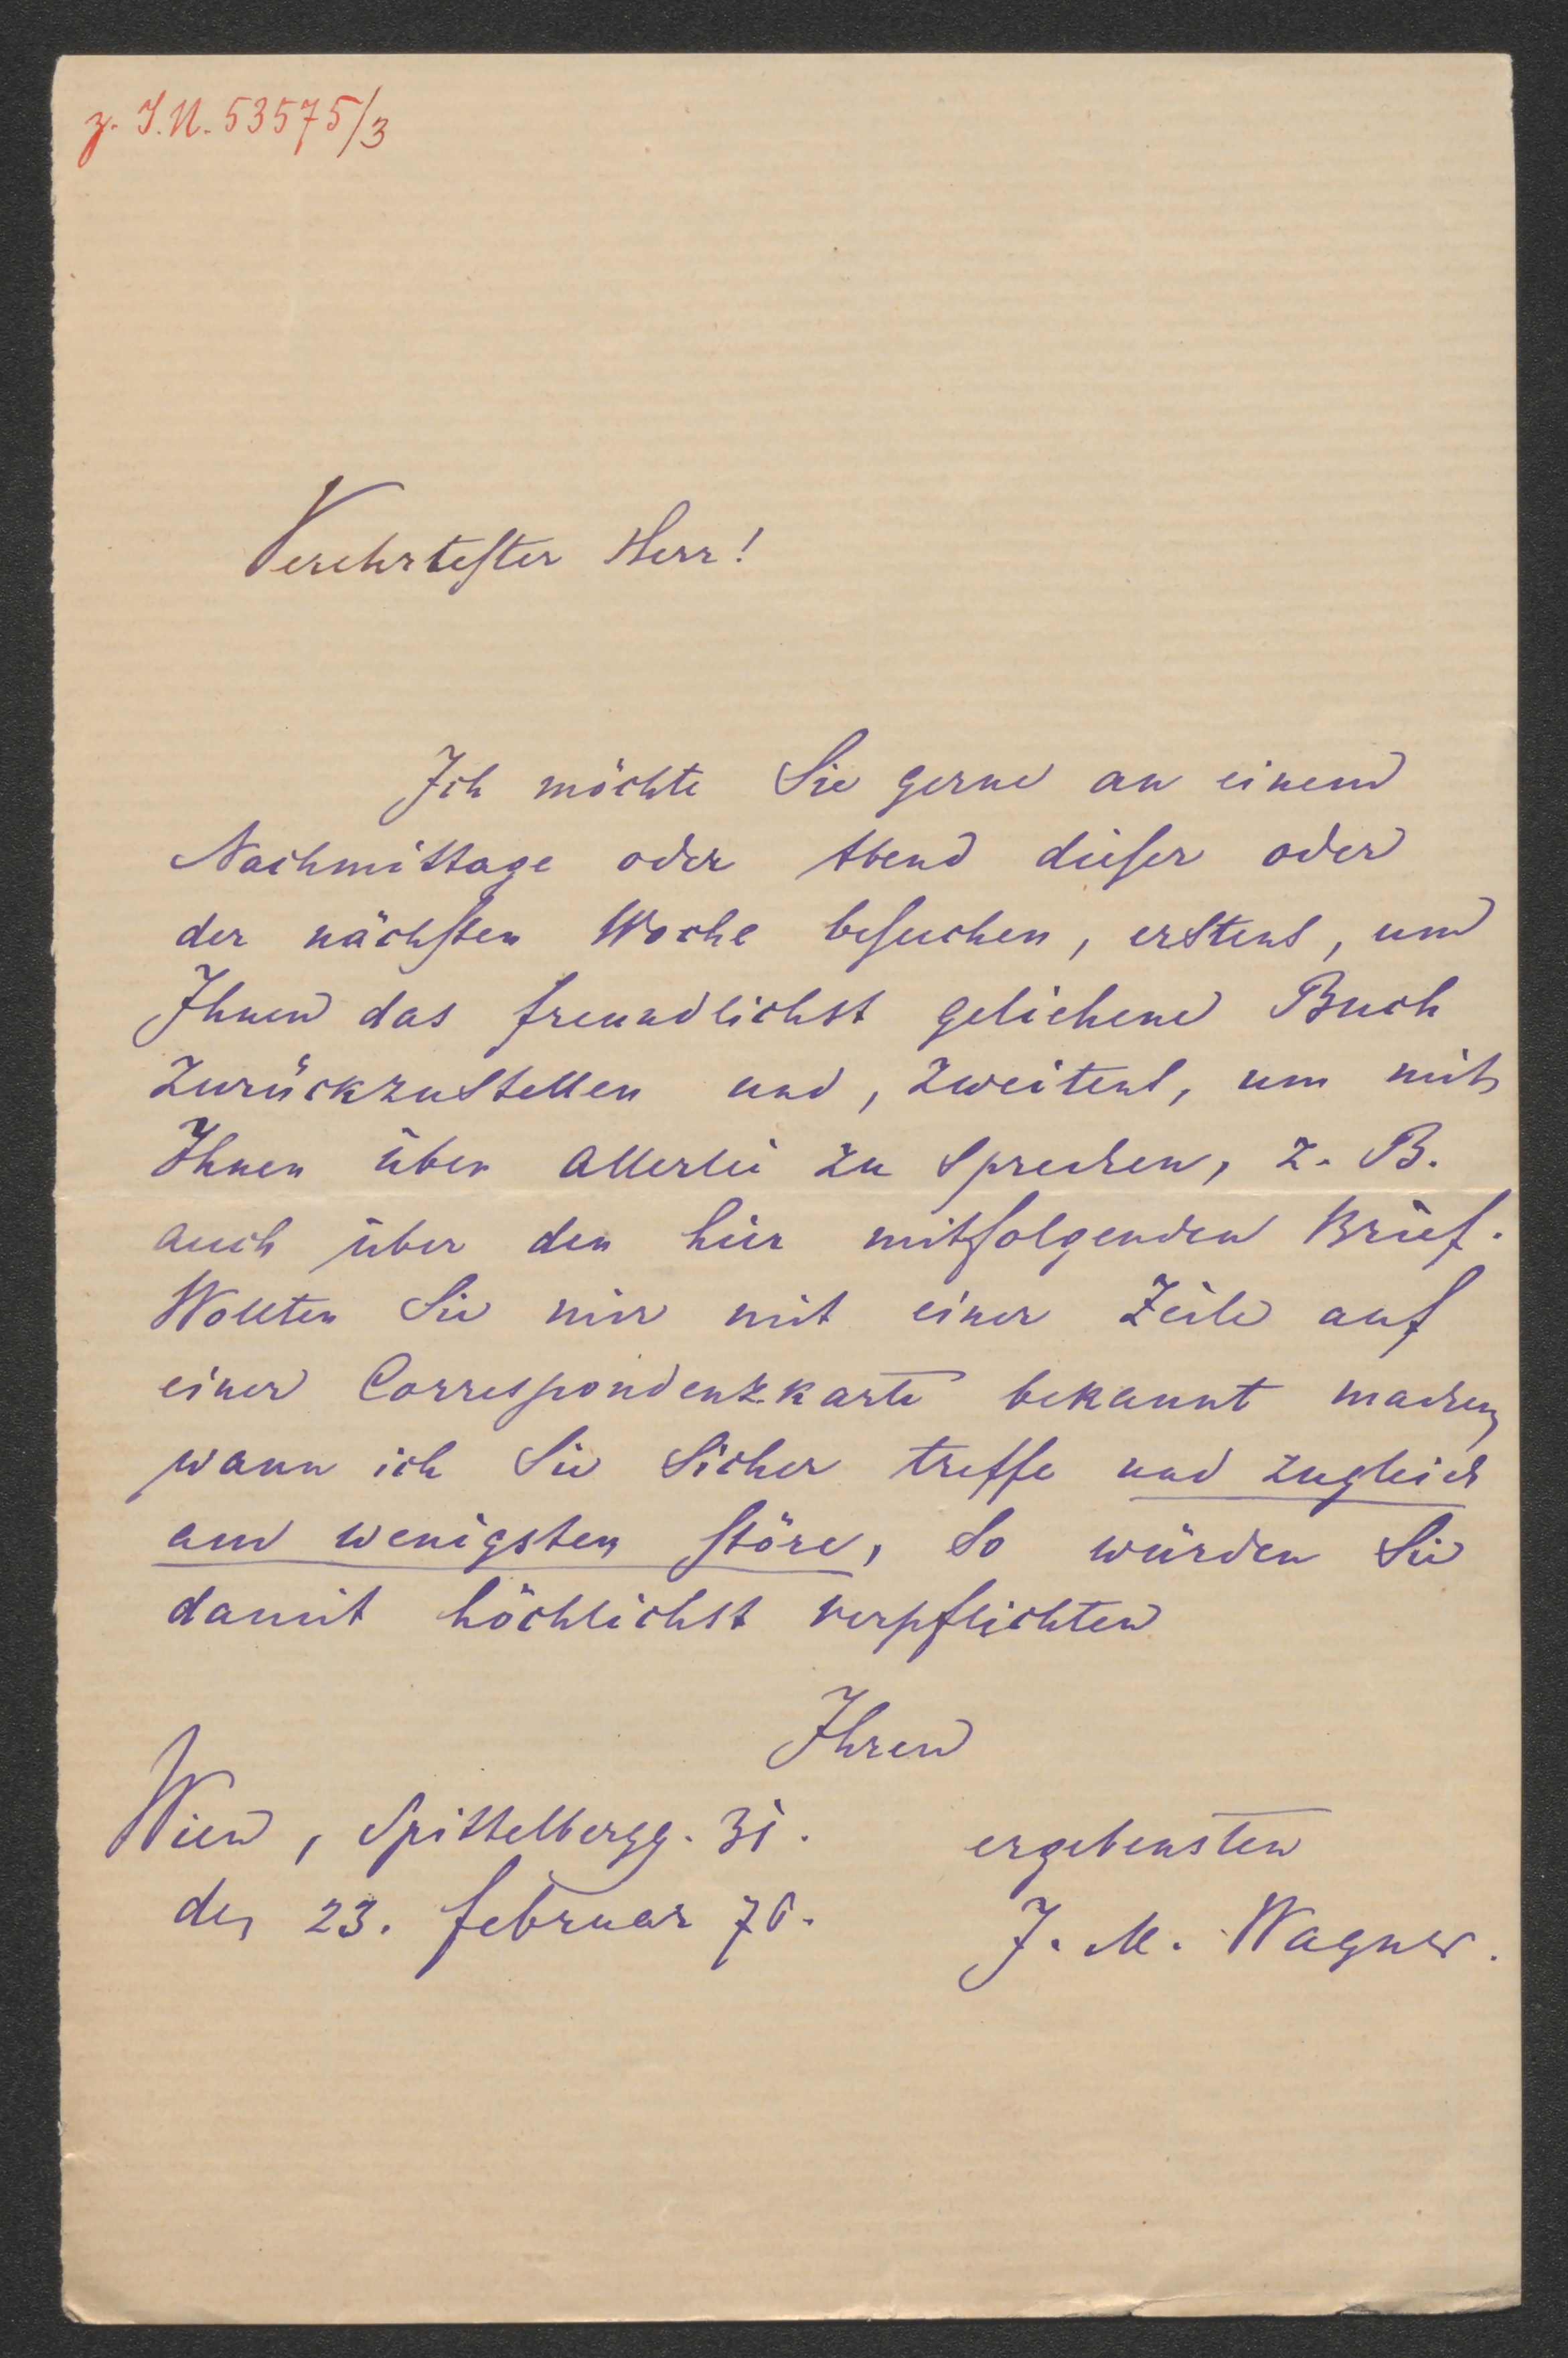 z. I.N. 53575/3
Verehrtester Herr!
Ich möchte Sie gerne an einem
Nachmittage oder Abend dieser oder
der nächsten Woche besuchen, erstens, um
Ihnen das freundlichst geliehene Buch
zurückzustellen und, zweitens, um mit
Ihnen über allerlei zu sprechen, z. B.
auch über den hier mitfolgenden Brief.
Wollten Sie mir mit einer Zeile auf
einer Correspondenzkarte bekannt machen,
wann ich Sie sicher treffe und zugleich
am wenigsten störe, so würden Sie
damit höchlichst verpflichten
Ihren
Wien, Spittelbergg. 31.
ergebensten
den 23. Februar 76.
J. M. Wagner.